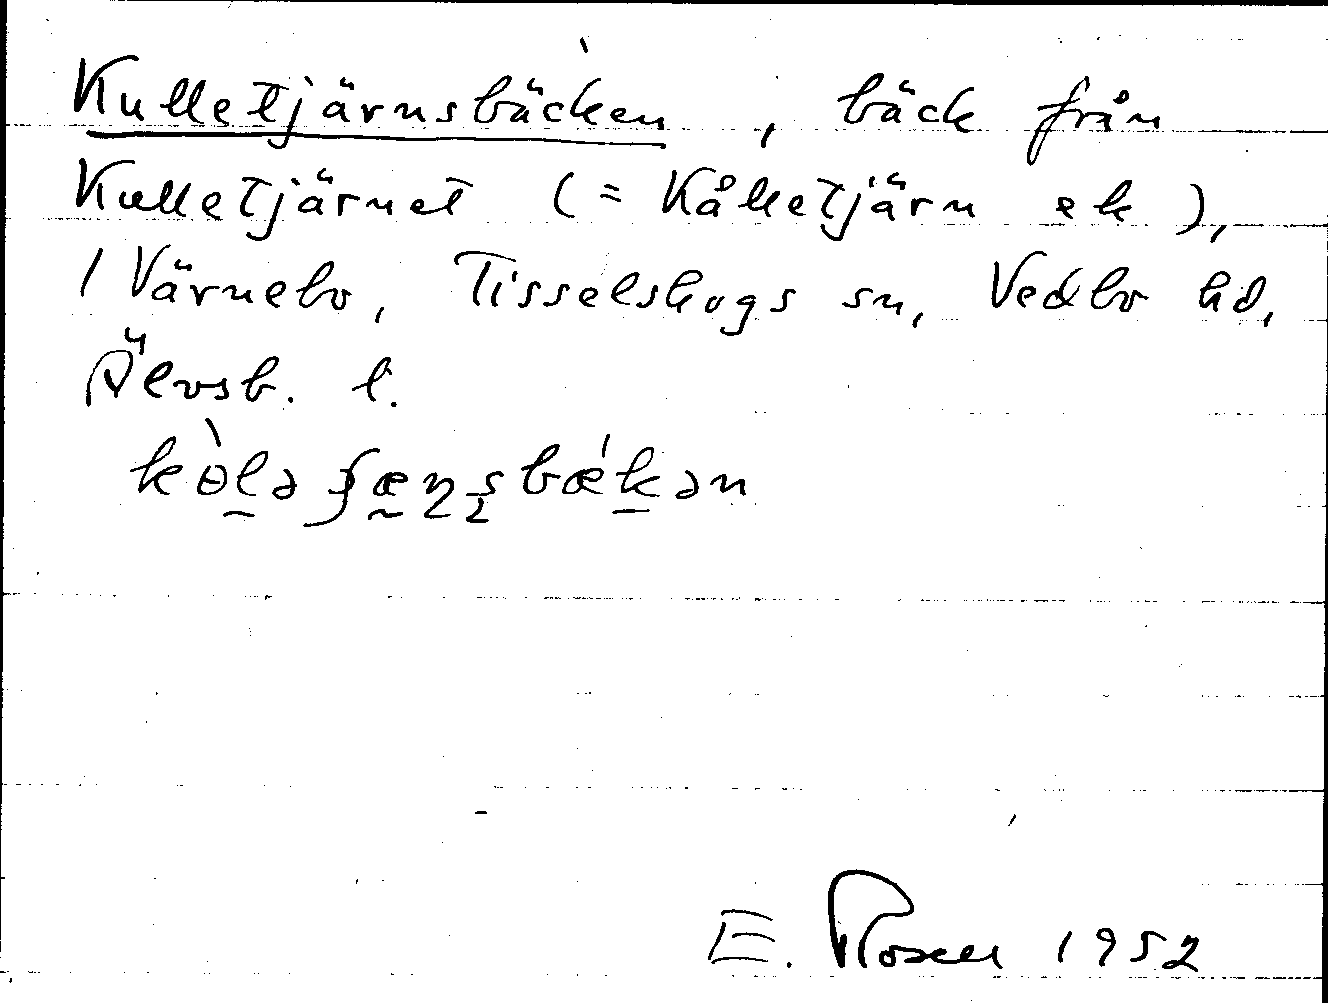 Kulletjärnsbäcken, bäck från
Kulletjärnet (= Kålletjärn ek),
i Värnebo, Tisselskogs sn, Vedbo hd,
Älvsb. l.
E. Rosell 1952